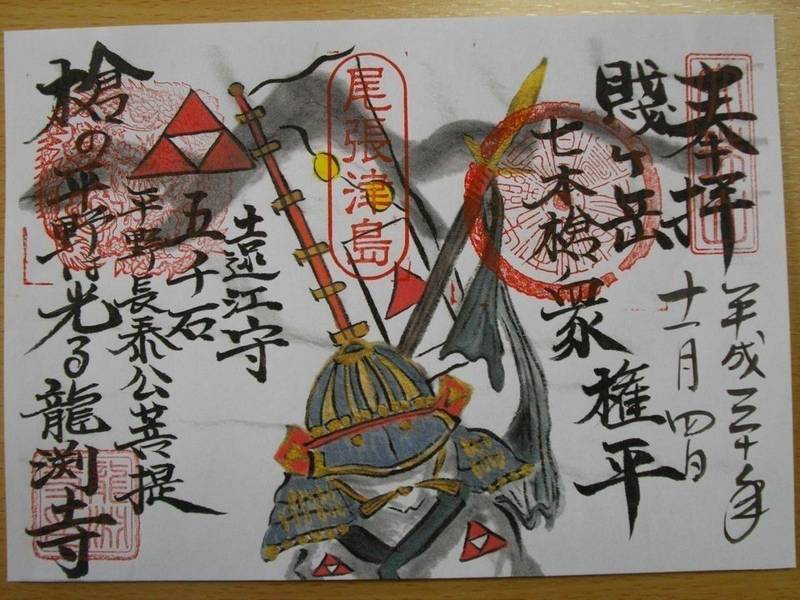 奉拝
平成三十年
十一月四日
賤ヶ岳
七本槍ノ衆
権平
尾張津島
遠江守
五千石
平野長泰公菩提
槍の平野行光る龍渕寺